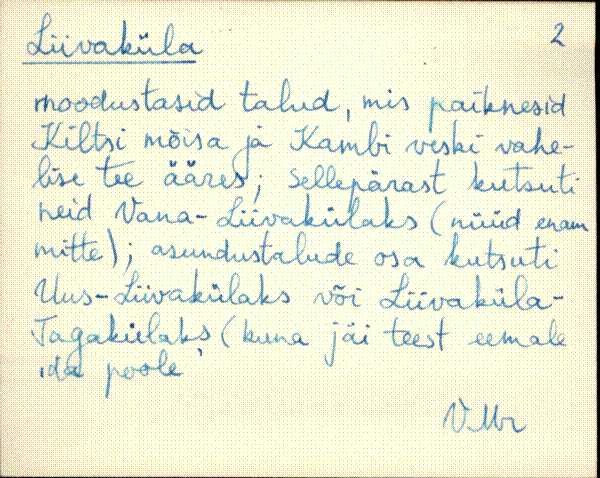 Liivaküla 2
moodustasid talud, mis paiknesid
Kiltsi mõisa ja Kambi veski vahe-
lise tee ääres; sellepärast kutsuti
neid Vana-Liivakülaks (nüüd enam
mitte); asundustalude osa kutsuti
Uus-Liivakülaks või Liivaküla-
Tagakülaks (kuna jäi teest eemale
ida poole